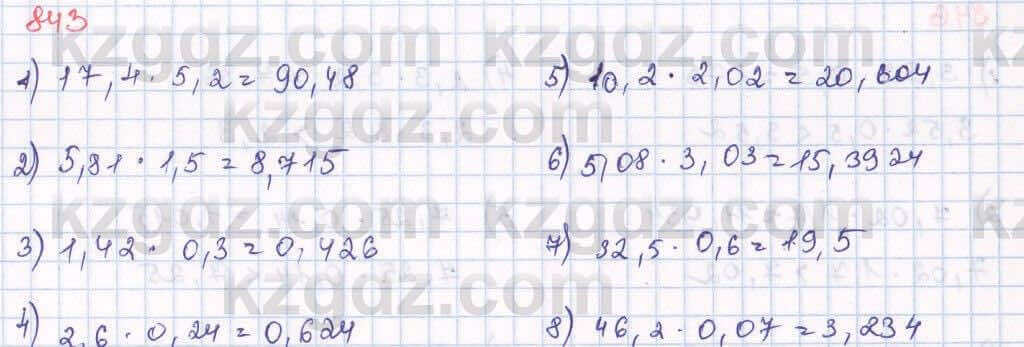 843
1) 17,4 · 5,2 = 90,48
2) 5,81 · 1,5 = 8,715
3) 1,42 · 0,3 = 0,426
4) 2,6 · 0,24 = 0,624
5) 10,2 · 2,02 = 20,604
6) 5,08 · 3,03 = 15,3924
7) 32,5 · 0,6 = 19,5
8) 46,2 · 0,07 = 3,234
kzgdz.com
kzgdz.com
kzgdz.com
kzgdz.com
kzgdz.com
kzgdz.com